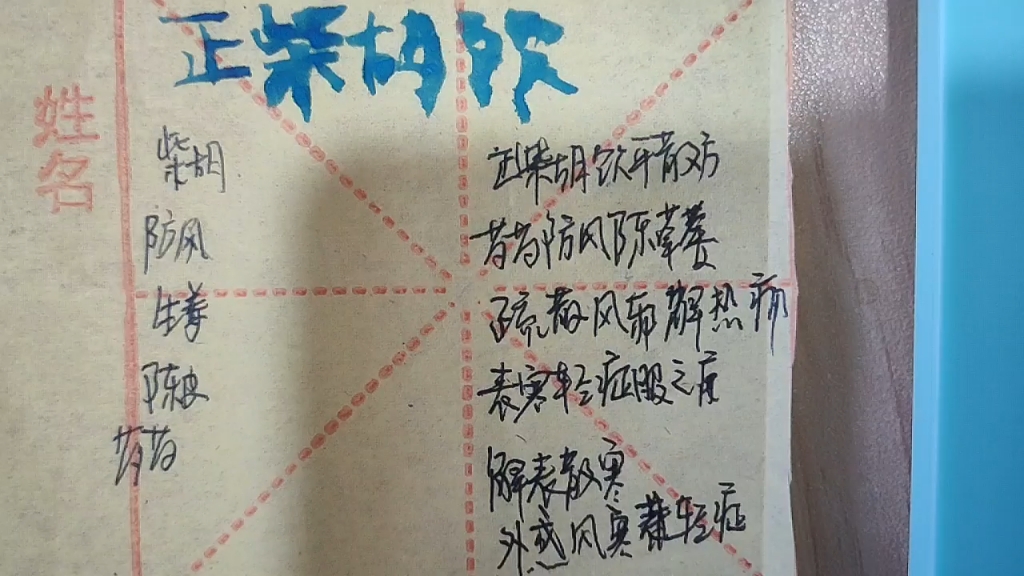 正柴胡饮
姓名
柴胡
防风
生姜
陈皮
芍药
正柴胡饮平散方
芍药防风陈草姜
疏散风邪解热痛
表寒轻症服之
解表散寒
外感风寒 轻症